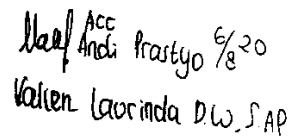 Acc
Maaf Andi Prastyo 6/8 20
Valien Laorinda D.W. S.AP